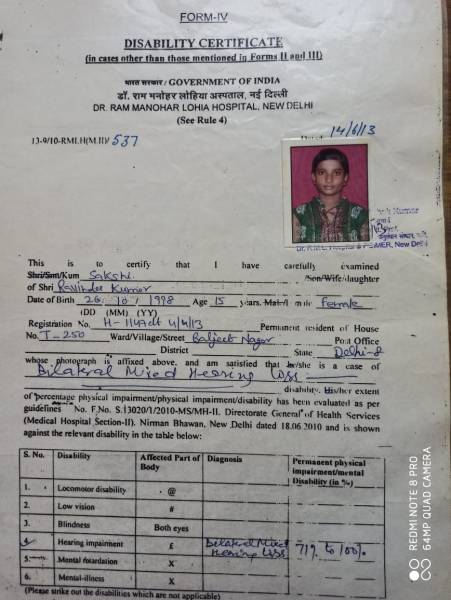 FORM-IV
DISABILITY CERTIFICATE
(in cases other than those mentioned in Forms II and III)
भारत सरकार / GOVERNMENT OF INDIA
डॉ. राम मनोहर लोहिया अस्पताल, नई दिल्ली
DR. RAM MANOHAR LOHIA HOSPITAL, NEW DELHI
(See Rule 4)
13-9/10-RMLH(M.II)/ 537
Dated 14/6/13
Dr. R.M.L. Hospital & PGIMER, New Delhi
This is to certify that I have carefully examined
Shri/Smt/Kum Sakshi /Son/Wife/daughter
of Shri Ravinder Kumar
Date of Birth 26 10 1998 Age 15 years. Male/Female Female
(DD) (MM) (YY)
Registration No. Permanent resident of House
No. T-250 Ward/Village/Street Baljeet Nagar Post Office
District State Delhi-8
whose photograph is affixed above, and am satisfied that he/she is a case of
Bilateral Mixed Hearing loss
disability. His/her extent
of percentage physical impairment/physical impairment/disability has been evaluated as per
guidelines No. F.No. S.13020/1/2010-MS/MH-II. Directorate General of Health Services
(Medical Hospital Section-II). Nirman Bhawan, New Delhi dated 18.06.2010 and is shown
against the relevant disability in the table below:
S. No. Disability Affected Part of Body Diagnosis Permanent physical impairment/mental Disability (in %)
1. Locomotor disability @
2. Low vision #
3. Blindness Both eyes
4 Hearing impairment £ Bilateral Mixed Hearing loss 71% to 100%
5. Mental retardation X
6. Mental-illness X
(Please strike out the disabilities which are not applicable)
REDMI NOTE 8 PRO
64MP QUAD CAMERA